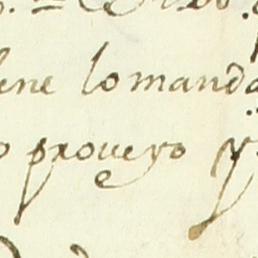 ene lo mandó
proueyo y